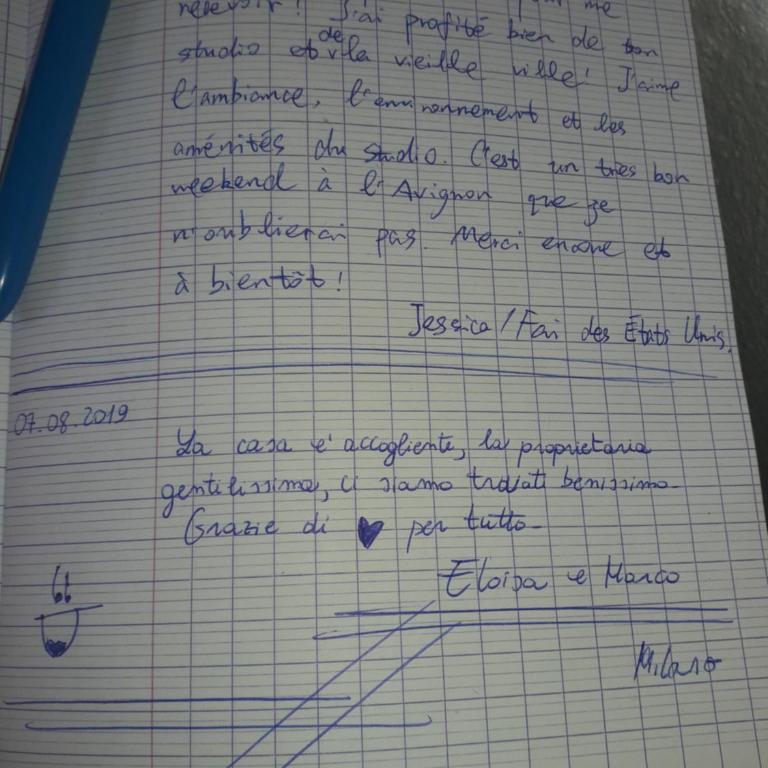 recevoir! J'ai profité bien de bon
studio et de la vieille ville! J'aime
l'ambiance, l'environnement et les
aménités du studio. C'est un très bon
weekend à l'Avignon que je
n'oublierai pas. Merci encore et
à bientôt!
Jessica / Fai des États Unis.
07.08.2019
La casa e' accogliente, la proprietaria
gentilissima, ci siamo trovati benissimo.
Grazie di ♥ per tutto.
Eloisa e Marco
Milano